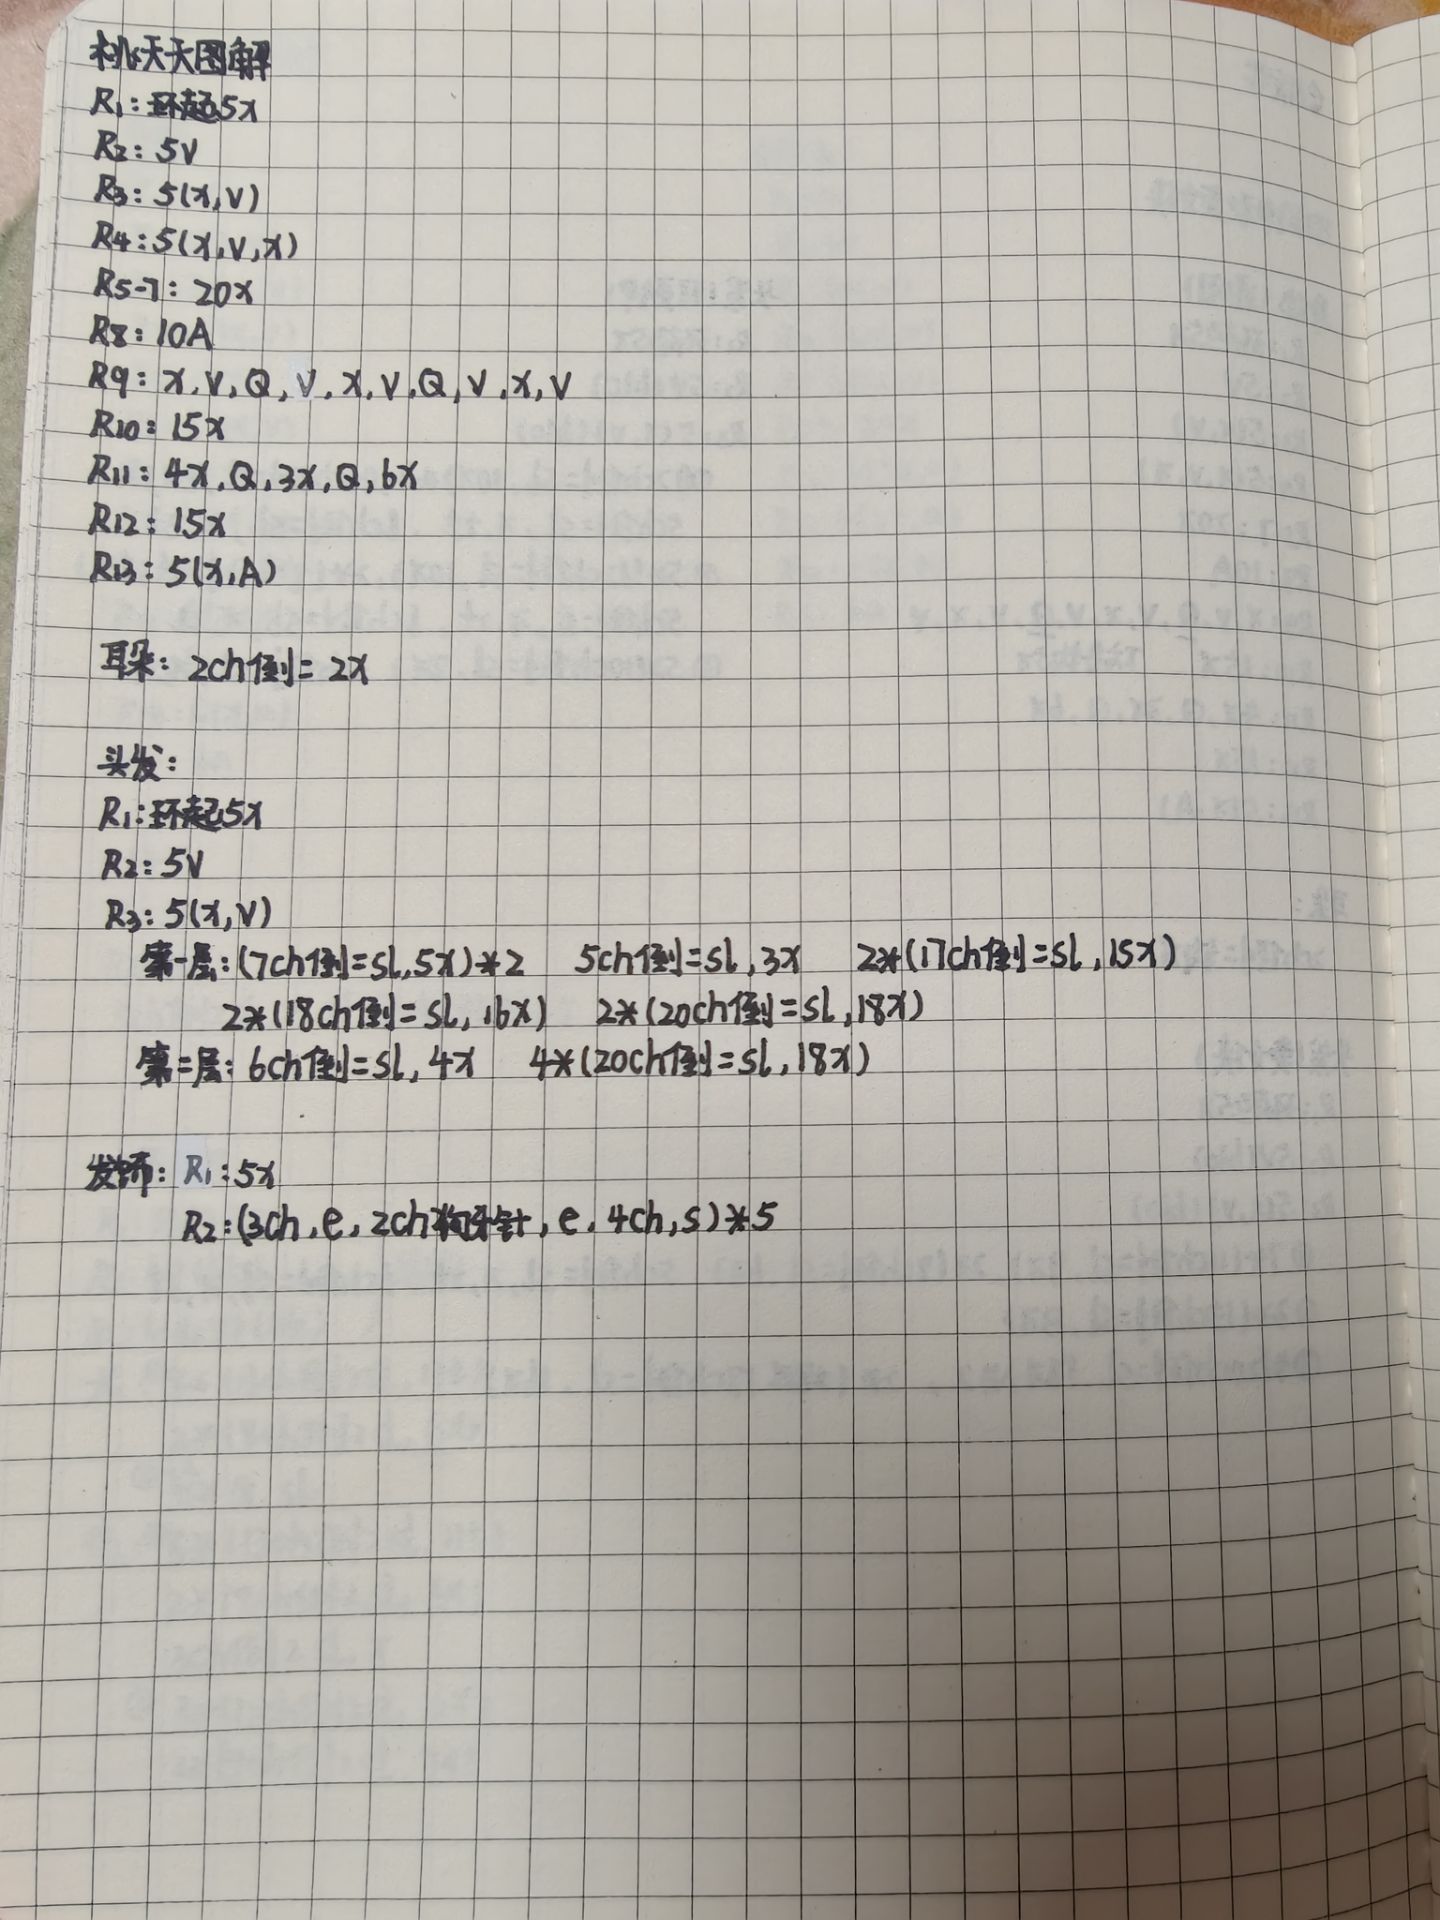 桃夭夭图解
R1:环起5x
R2:5V
R3:5(x,V)
R4:5(x,V,x)
R5-7:20x
R8:10A
R9:x,V,Q,V,x,V,Q,V,x,V
R10:15x
R11:4x,Q,3x,Q,6x
R12:15x
R13:5(x,A)
耳朵:2ch倒=2x
头发:
R1:环起5x
R2:5V
R3:5(x,V)
第一层:(7ch倒=sl,5x)*2 5ch倒=sl,3x 2*(17ch倒=sl,15x)
2*(18ch倒=sl,16x) 2*(20ch倒=sl,18x)
第二层:6ch倒=sl,4x 4*(20ch倒=sl,18x)
发饰:R1:5x
R2:(3ch,e,2ch狗牙针,e,4ch,s)*5